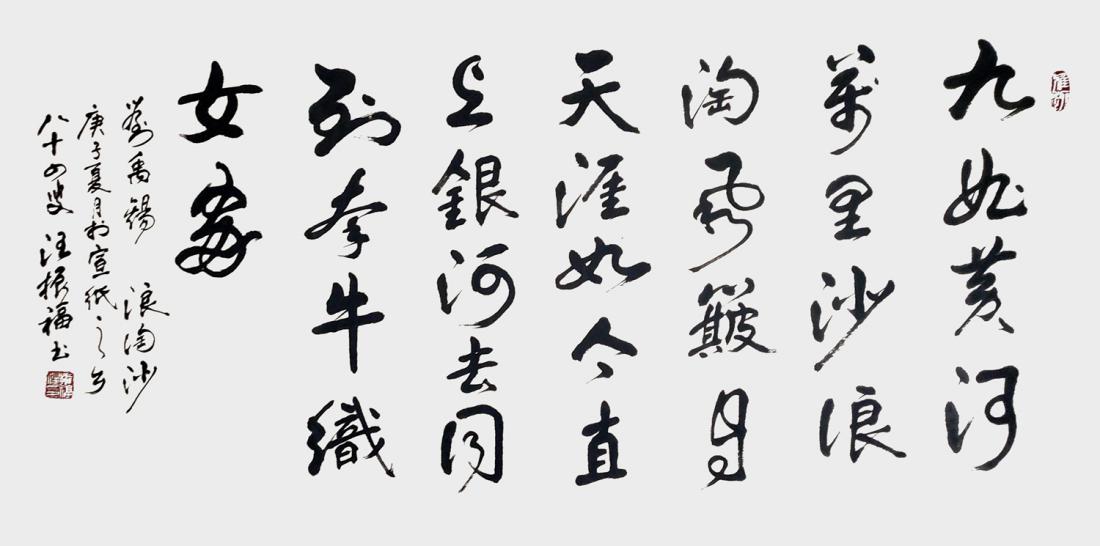 九曲黄河
萬里沙浪
淘風簸自
天涯如今直
上銀河去同
到牵牛織
女家
劉禹錫 浪淘沙
庚子夏月於宣紙之乡
八十四叟 汪振福书